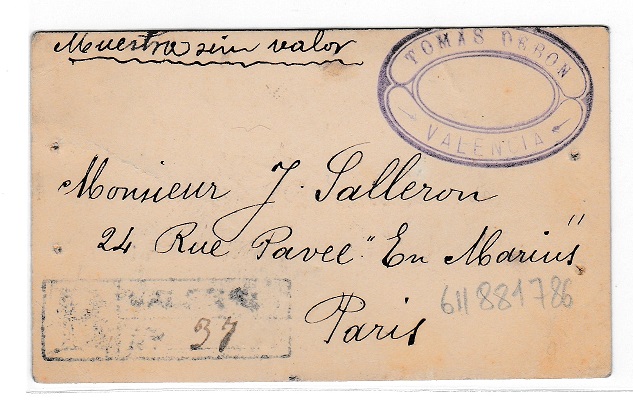 Muestra sin valor
TOMAS DEBON
VALENCIA
Monsieur J. Salleron
24 Rue Pavee "En Marius"
Paris
VALENCIA
37
611 881 786